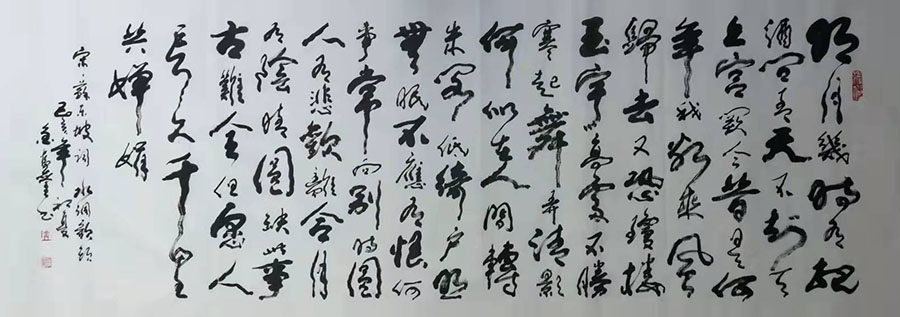 明月幾時有把
酒問青天不知天
上宮闕今昔是何
年我欲乘風
歸去又恐瓊樓
玉宇高處不勝
寒起舞弄清影
何似在人間轉
朱閣低綺戶照
無眠不應有恨何
事常向別時圓
人有悲歡離合月
有陰晴圓缺此事
古難全但願人
長久千里
共嬋娟
宋蘇東坡詞水調歌頭
己亥年初夏
書